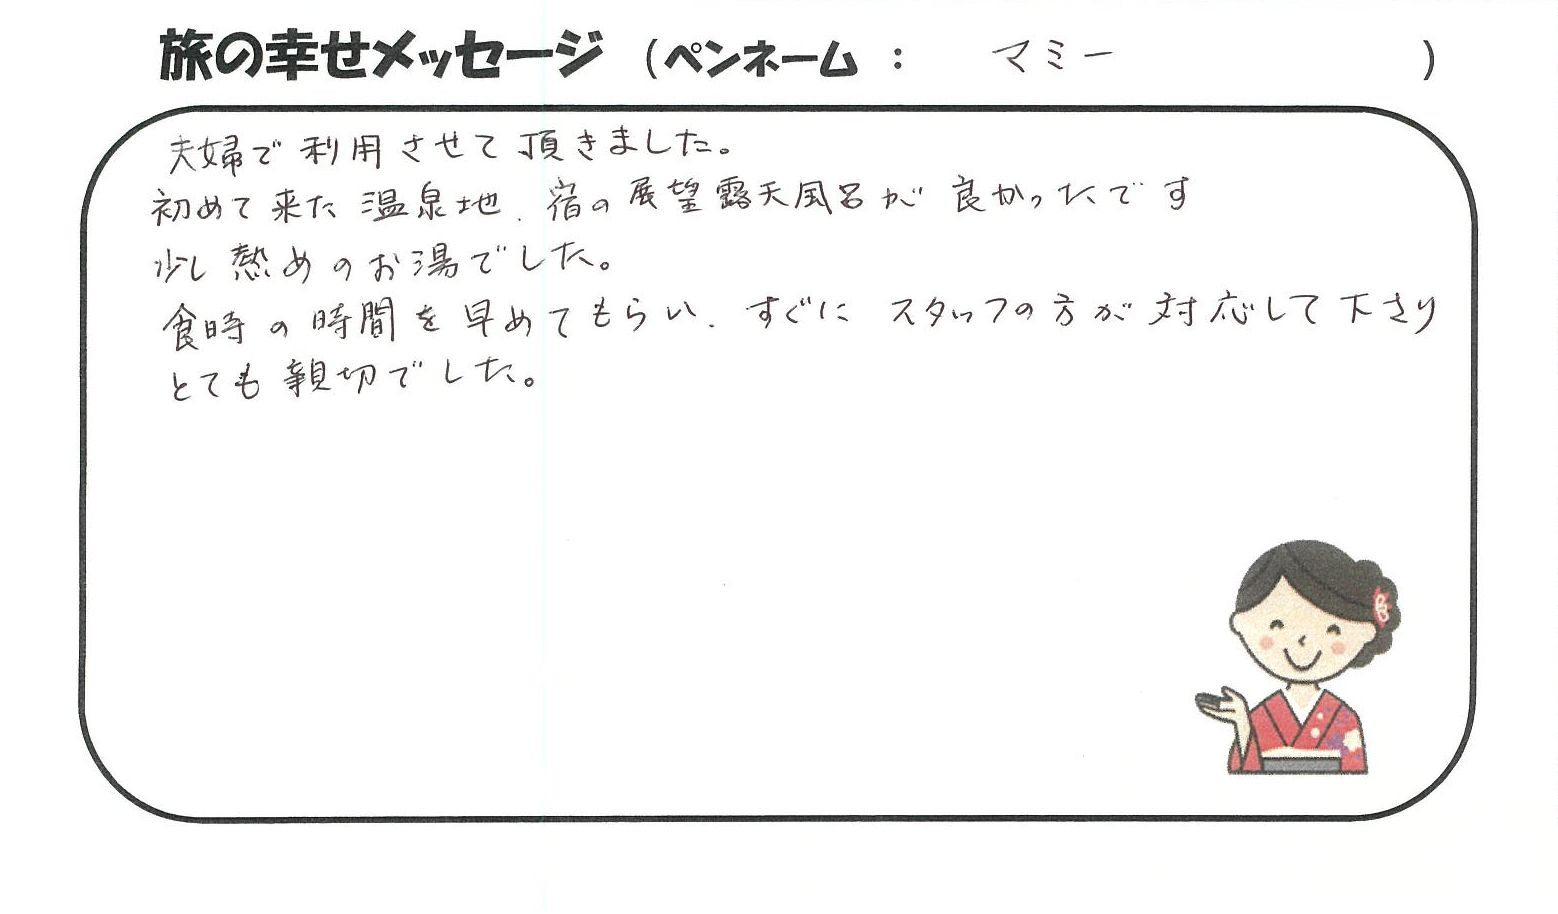 旅の幸せメッセージ (ペンネーム : マミー )
夫婦で利用させて頂きました。
初めて来た温泉地、宿の展望露天風呂が良かったです
少し熱めのお湯でした。
食時の時間を早めてもらい、すぐにスタッフの方が対応して下さり
とても親切でした。